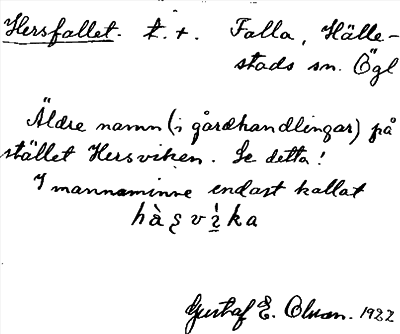 Hersfallet. t. +. Falla, Hälle-
stads sn. Ögl
Äldre namn (i gårdhandlingar) på
stället Hersviken. Se detta!
I mannaminne endast kallat
Gustaf E. Olsson. 1922